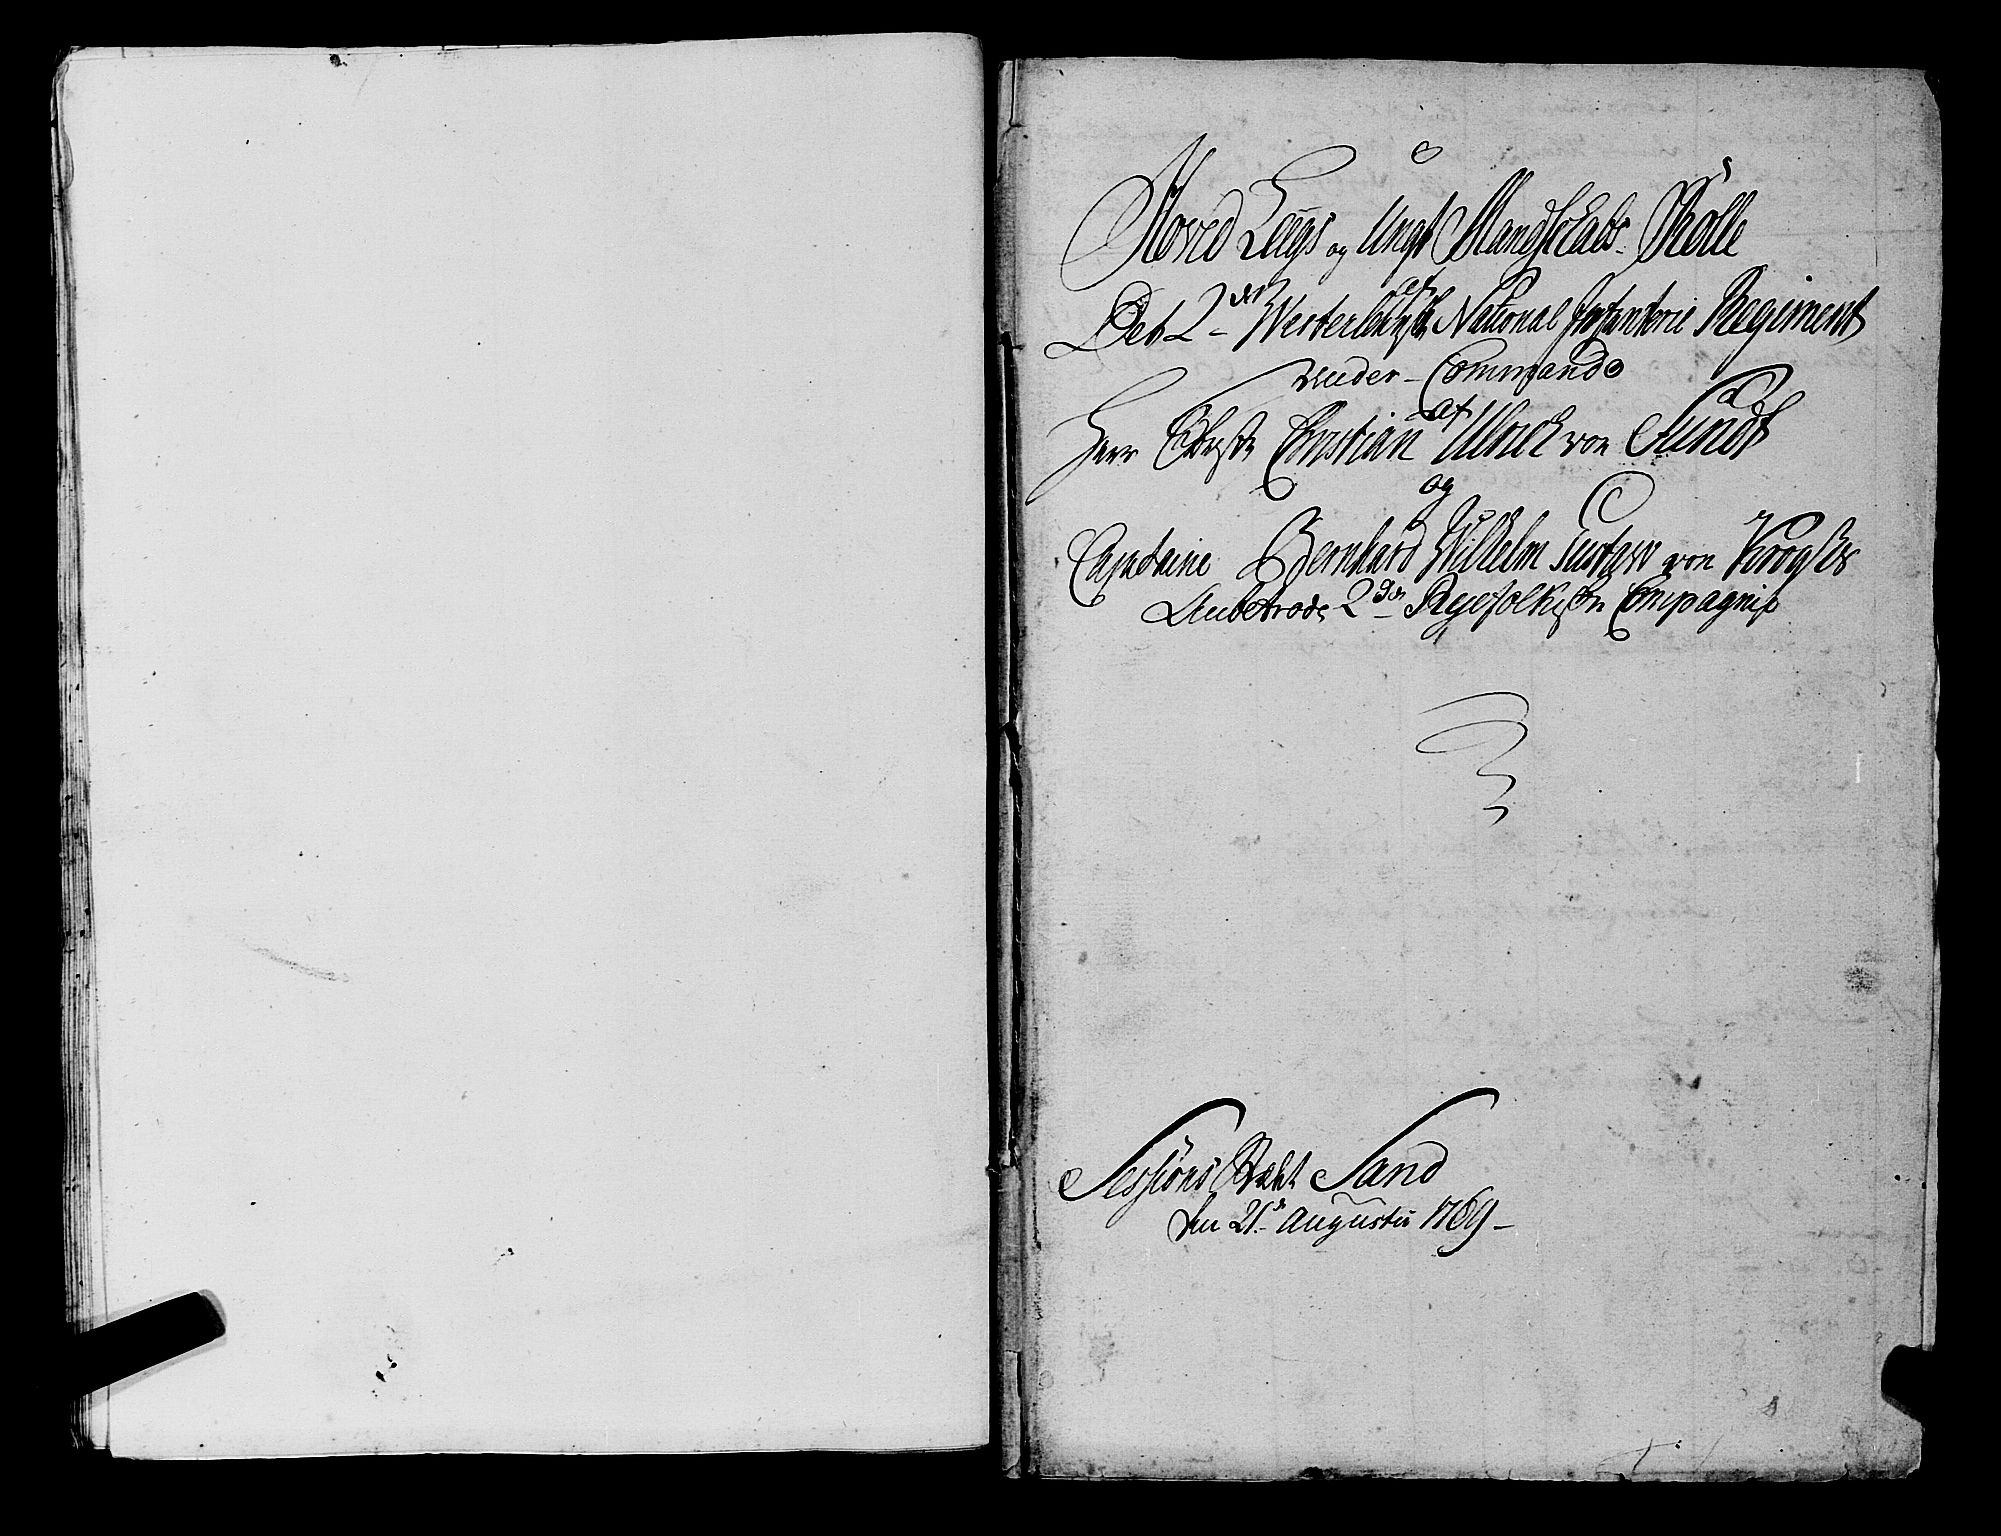 Hoved Lægs og Ungt Mandskabs Rolle
af
Det 2den Westerlehnske National Infanterie Regiment
under Commando
af
Herr Obriste Christian Ulrick von Sundt
og
Capitaine Bernhard Wilhelm Gustaw von Krogs
Anbetrode 2den Ryefolkske Compagnie
Sessions Stædet Sand
den 21de Augusti 1769